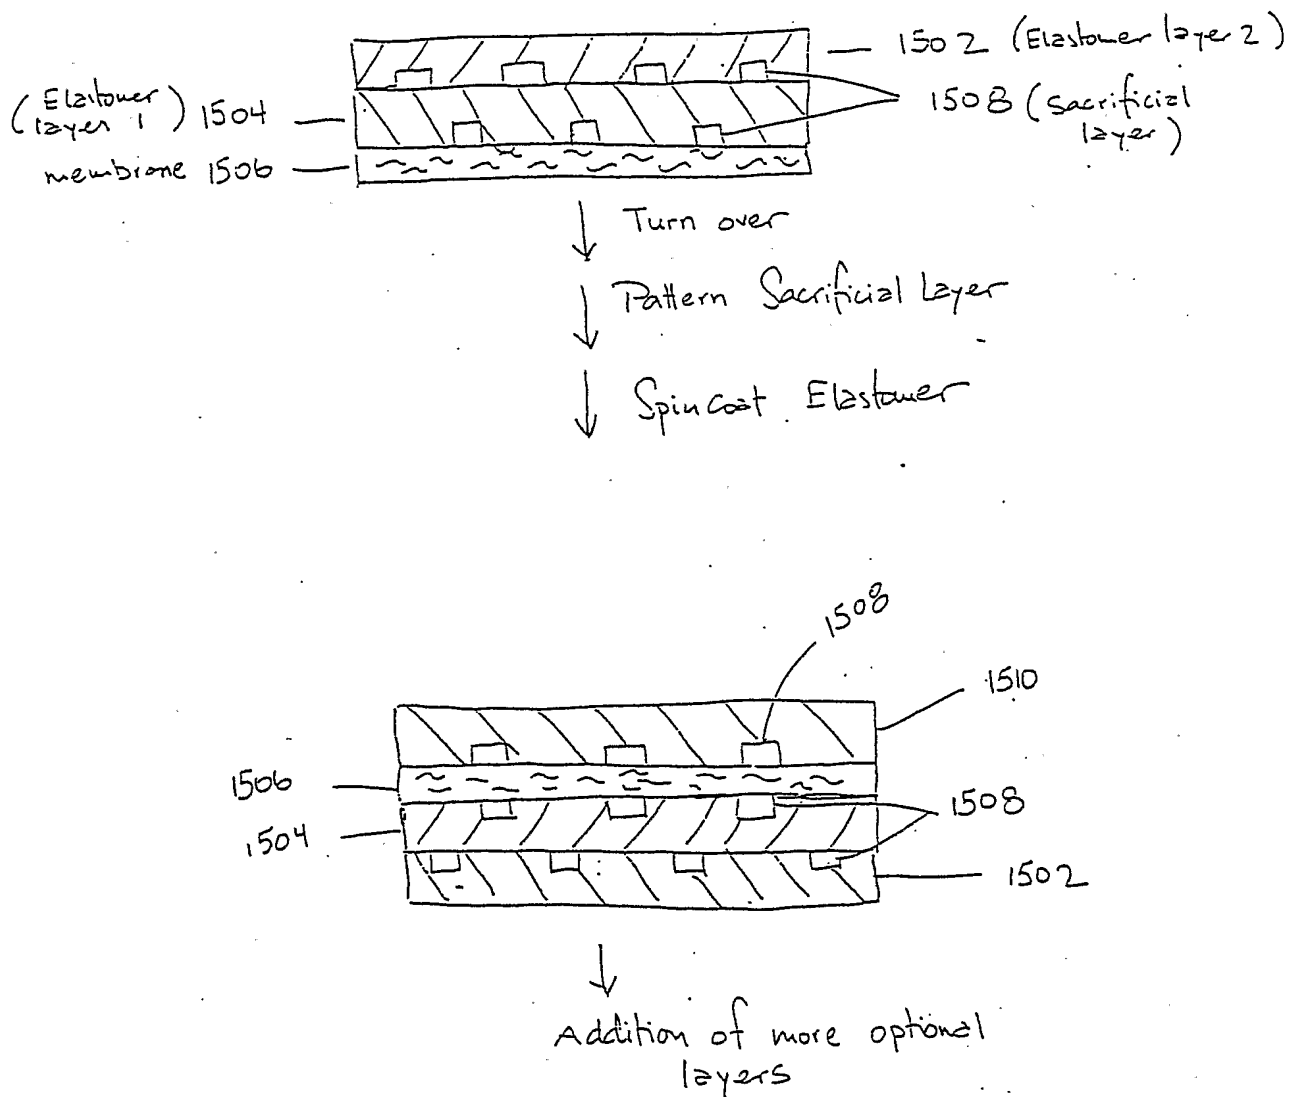 1502 (Elastomer layer 2)
(Elastomer
layer 1) 1504
1508 (Sacrificial
layer)
membrane 1506
Turn over
Pattern Sacrificial Layer
Spincoat Elastomer
1508
1510
1506
1508
1504
1502
Addition of more optional
layers